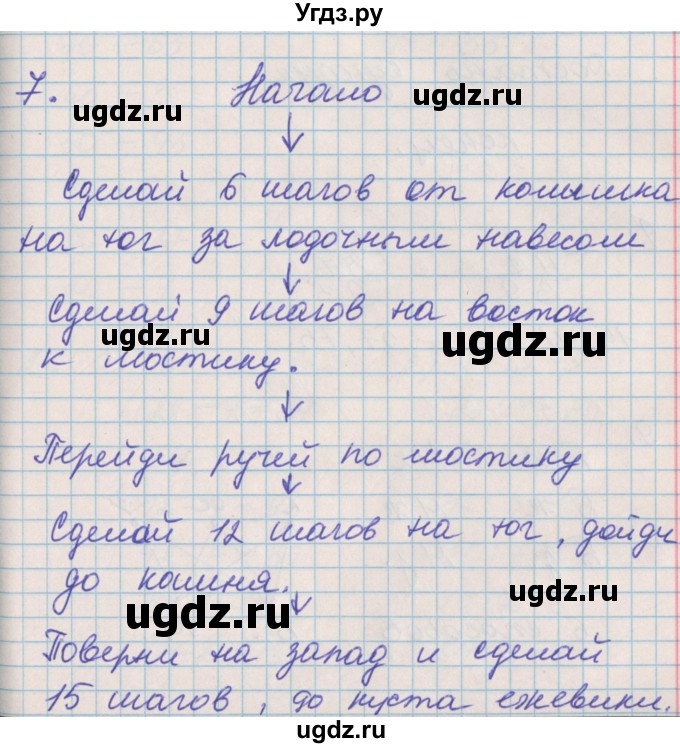 Угдз.ру
7. Начало
ugdz.ru ugdz.ru
Сделай 6 шагов от колышка
на юг за лодочным навесом
Сделай 9 шагов на восток
ugdz.ru ugdz.ru
к мостику.
Перейди ручей по мостику
Сделай 12 шагов на юг, дойди
до камня.
ugdz.ru ugdz.ru
Поверни на запад и сделай
15 шагов, до куста ежевики.
ugdz.ru